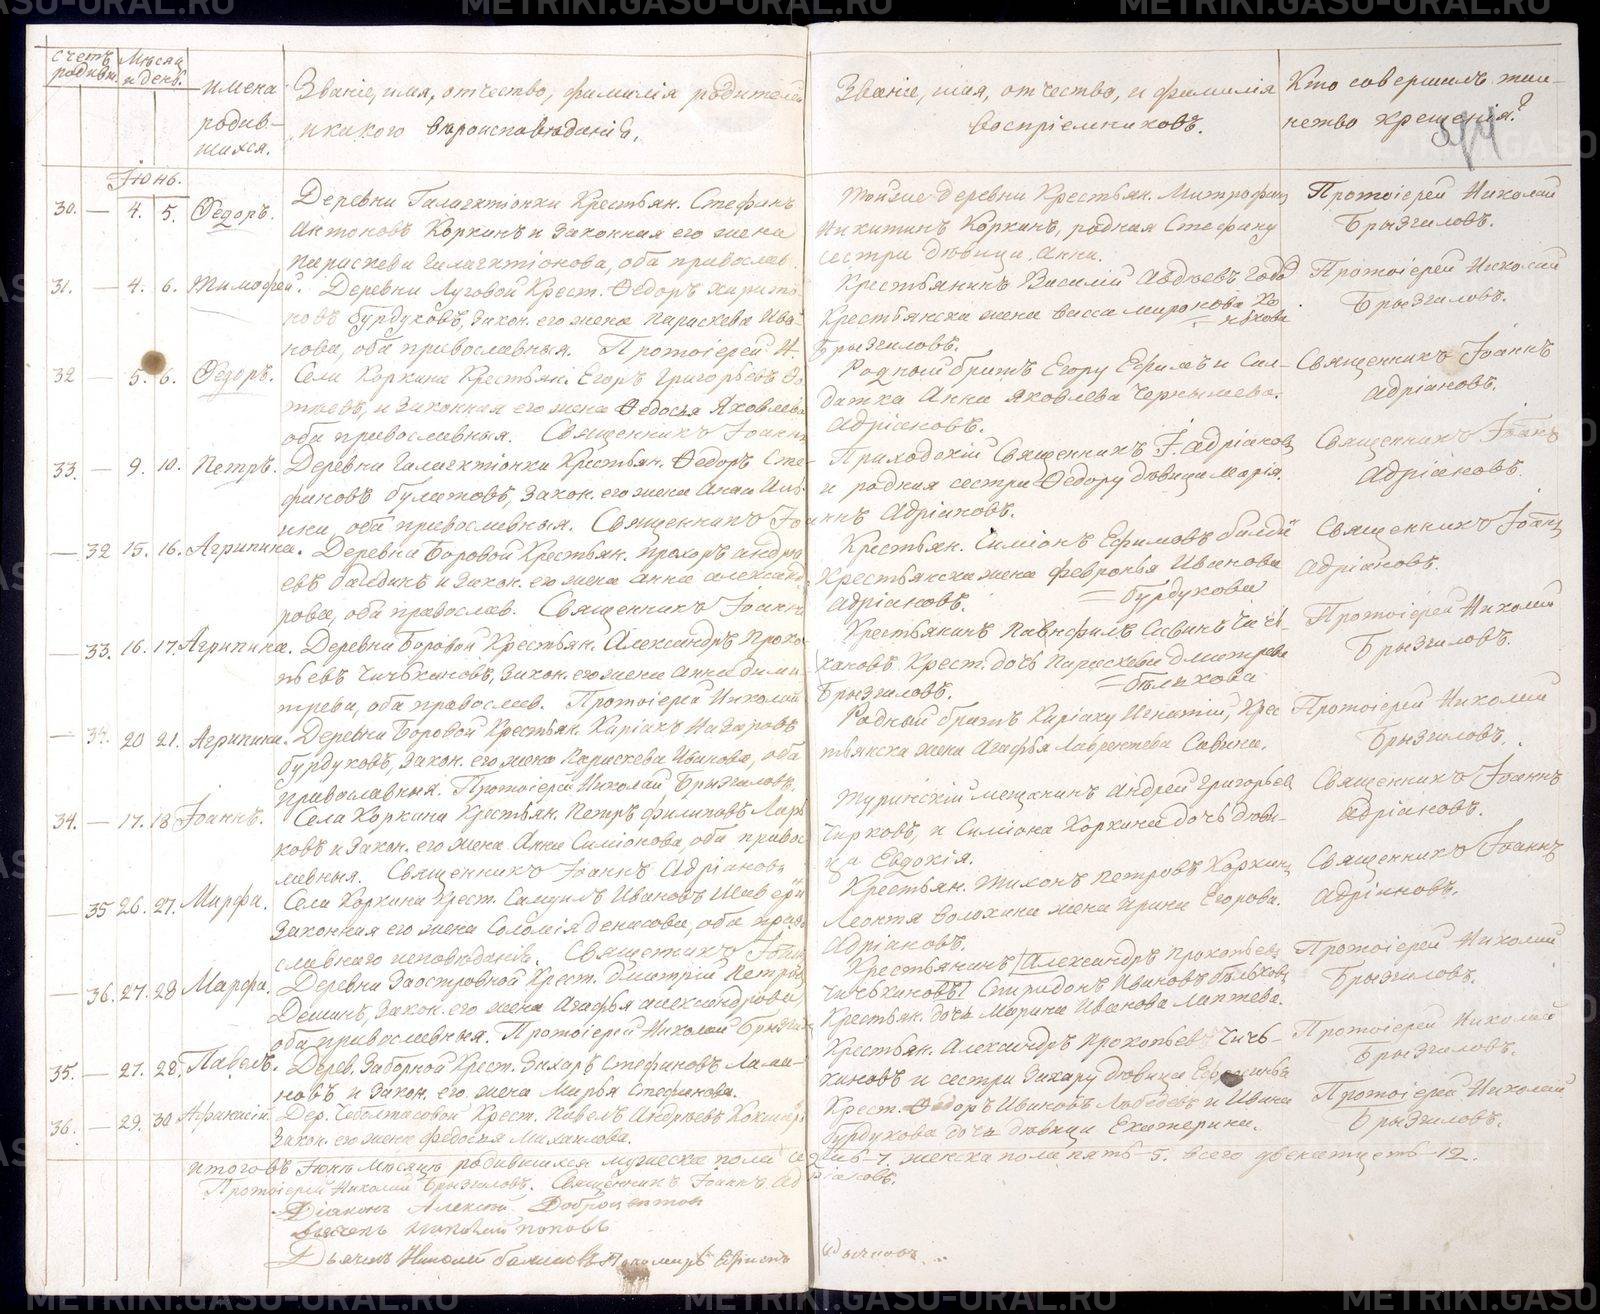 счетъ родивш.
Мѣсяц и день.
имена родив-шихся.
Званіе, имя, отчество, фамилія родителей
и какого вѣроисповѣданія.
Званіе, имя, отчество, и фамилія
воспріемниковъ.
Кто совершилъ таи-
нство крещенія?
Іюнь.
30. — 4. 5. Ѳедоръ. Деревни Галактіонки Крестьян. Стефанъ
Антоновъ Коркинъ и законная его жена
Параскева Галактіонова, оба православ.
Тойже деревни Крестьян. Митрофан
Никитинъ Коркинъ, родная Стефану
сестра дѣвица Анна.
Протоіерей Николай
Брызгаловъ.
31. — 4. 6. Тимофей. Деревни Луговой Крест. Ѳедоръ Харито-
новъ Бурдуковъ, закон. его жена Параскева Ива-
нова, оба православныя. Протоіерей Н.
Крестьянинъ Василій Авдѣевъ
Крестьянска жена Васса Миронова
Брызгаловъ.
Протоіерей Николай
Брызгаловъ.
32 — 5. 6. Ѳедоръ. Села Коркина Крестьян. Егоръ Григорьевъ
и законная его жена Ѳедосья Яковлева
оба православныя. Священникъ Іоаннъ
Родный братъ Егору Ефимъ и Сол-
датка Анна Яковлева Чернышева.
Адріановъ.
Священникъ Іоаннъ
Адріановъ.
33. — 9. 10. Петръ. Деревни Галактіонки Крестьян. Ѳедоръ Сте-
фановъ Булатовъ, закон. его жена Анна Иль-
ина, оба православныя. Священникъ Іоаннъ Адріановъ.
Приходскій Священникъ І. Адріанов
и родная сестра Ѳедору дѣвица Марія.
Священникъ Іоаннъ
Адріановъ.
— 32 15. 16. Агрипина. Деревни Боровой Крестьян. Прохоръ Андре-
евъ и закон. его жена Анна Александ-
рова, оба православ. Священникъ Іоаннъ
Крестьян. Симіонъ Ефимовъ
Крестьянска жена Февронья Иванова
Бурдукова
Адріановъ.
Священникъ Іоанн
Адріановъ.
— 33. 16. 17. Агрипина. Деревни Боровой Крестьян. Александръ Проко-
пьевъ Чичькановъ, закон. его жена Анна Дими-
трева, оба православ. Протоіерей Николай
Крестьянинъ Панфилъ Савинъ Чичь-
кановъ Крест. дочь Параскева Дмитрева
Бѣлькова
Брызгаловъ.
Протоіерей Николай
Брызгаловъ.
— 34. 20 21. Агрипина. Деревни Боровой Крестьян. Киріакъ Назаровъ
Бурдуковъ, закон. его жена Параскева Иванова, оба
православныя. Протоіерей Николай Брызгаловъ.
Родный братъ Киріаку Игнатій, Крес
тьянска жена Агафья Лаврентева Савина.
Протоіерей Николай
Брызгаловъ.
34. — 17. 18 Іоаннъ. Села Коркина Крестьян. Петръ Филиповъ
и закон. его жена Анна Симіонова, оба правос-
лавныя. Священникъ Іоаннъ Адріановъ
Туринскій мещанинъ Андрей Григорьев
Чирковъ, и Симіона Коркина дочь дѣви-
ца Евдокія.
Священникъ Іоаннъ
Адріановъ.
— 35 26. 27. Марфа. Села Коркина Крест. Самуилъ Ивановъ
законная его жена Соломія Денисова, оба право
славнаго исповѣданія. Священникъ Іоанн
Крестьян. Тихонъ Петровъ Коркин
Леонтя Волохина жена Ирина Егорова.
Адріановъ.
Священникъ Іоаннъ
Адріановъ.
— 36. 27. 28 Марфа. Деревни Заостровной Крест. Дмитрій Петров
Деминъ, закон. его жена Агафья Александрова,
оба православныя. Протоіерей Николай Брызгал
Крестьянинъ Александръ Прокопьев
Чичькановъ Спиридонъ Ивановъ Бѣльков
Крестьян. дочь Марина Иванова Лаптева.
Протоіерей Николай
Брызгаловъ.
35. — 27. 28. Павелъ. Дерев. Заборной Крест. Захаръ Стефановъ Лама-
новъ и закон. его жена Марья Стефанова.
Крестьян. Александръ Прокопьев Чичь-
кановъ и сестра Захару дѣвица
Протоіерей Николай
Брызгаловъ.
36. — 29. 30 Афанасій Дер. Крест. Павелъ Андреевъ
закон. его жена Федосья Михаилова.
Крест. Ѳедоръ Ивановъ Лебедевъ и Ивана
Бурдукова дочь дѣвица Екатерина.
Протоіерей Николай
Брызгаловъ.
Итого въ Іюнѣ мѣсяцѣ родившихся мужеска пола седмь - 7, женска пола пять - 5. всего двенатцеть - 12.
Протоіерей Николай Брызгаловъ. Священникъ Іоаннъ Адріановъ.
Діаконъ Алексій
Николай Поповъ
Дьячекъ Николай
METRIKI.GASU-URAL.RU